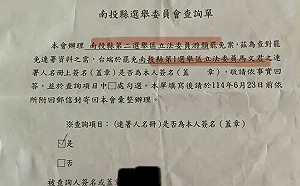 南投縣選舉委員會查詢單
本會辦理南投縣第二選舉區立法委員游顥罷免案，茲為查對罷
免連署資料之需，台端於罷免南投縣第1選舉區立法委員馬文君之連
署人名冊上簽名（蓋章）是否為本人簽名（蓋章），敬請依事實回
答，並於查詢項目中□處勾選。本單填寫後請於114年6月23日前依
所附回郵信封寄回本會彙整辦理。
※查詢項目：(連署人名冊)是否為本人簽名（蓋章）
☑是
□否
被查詢人簽名或蓋